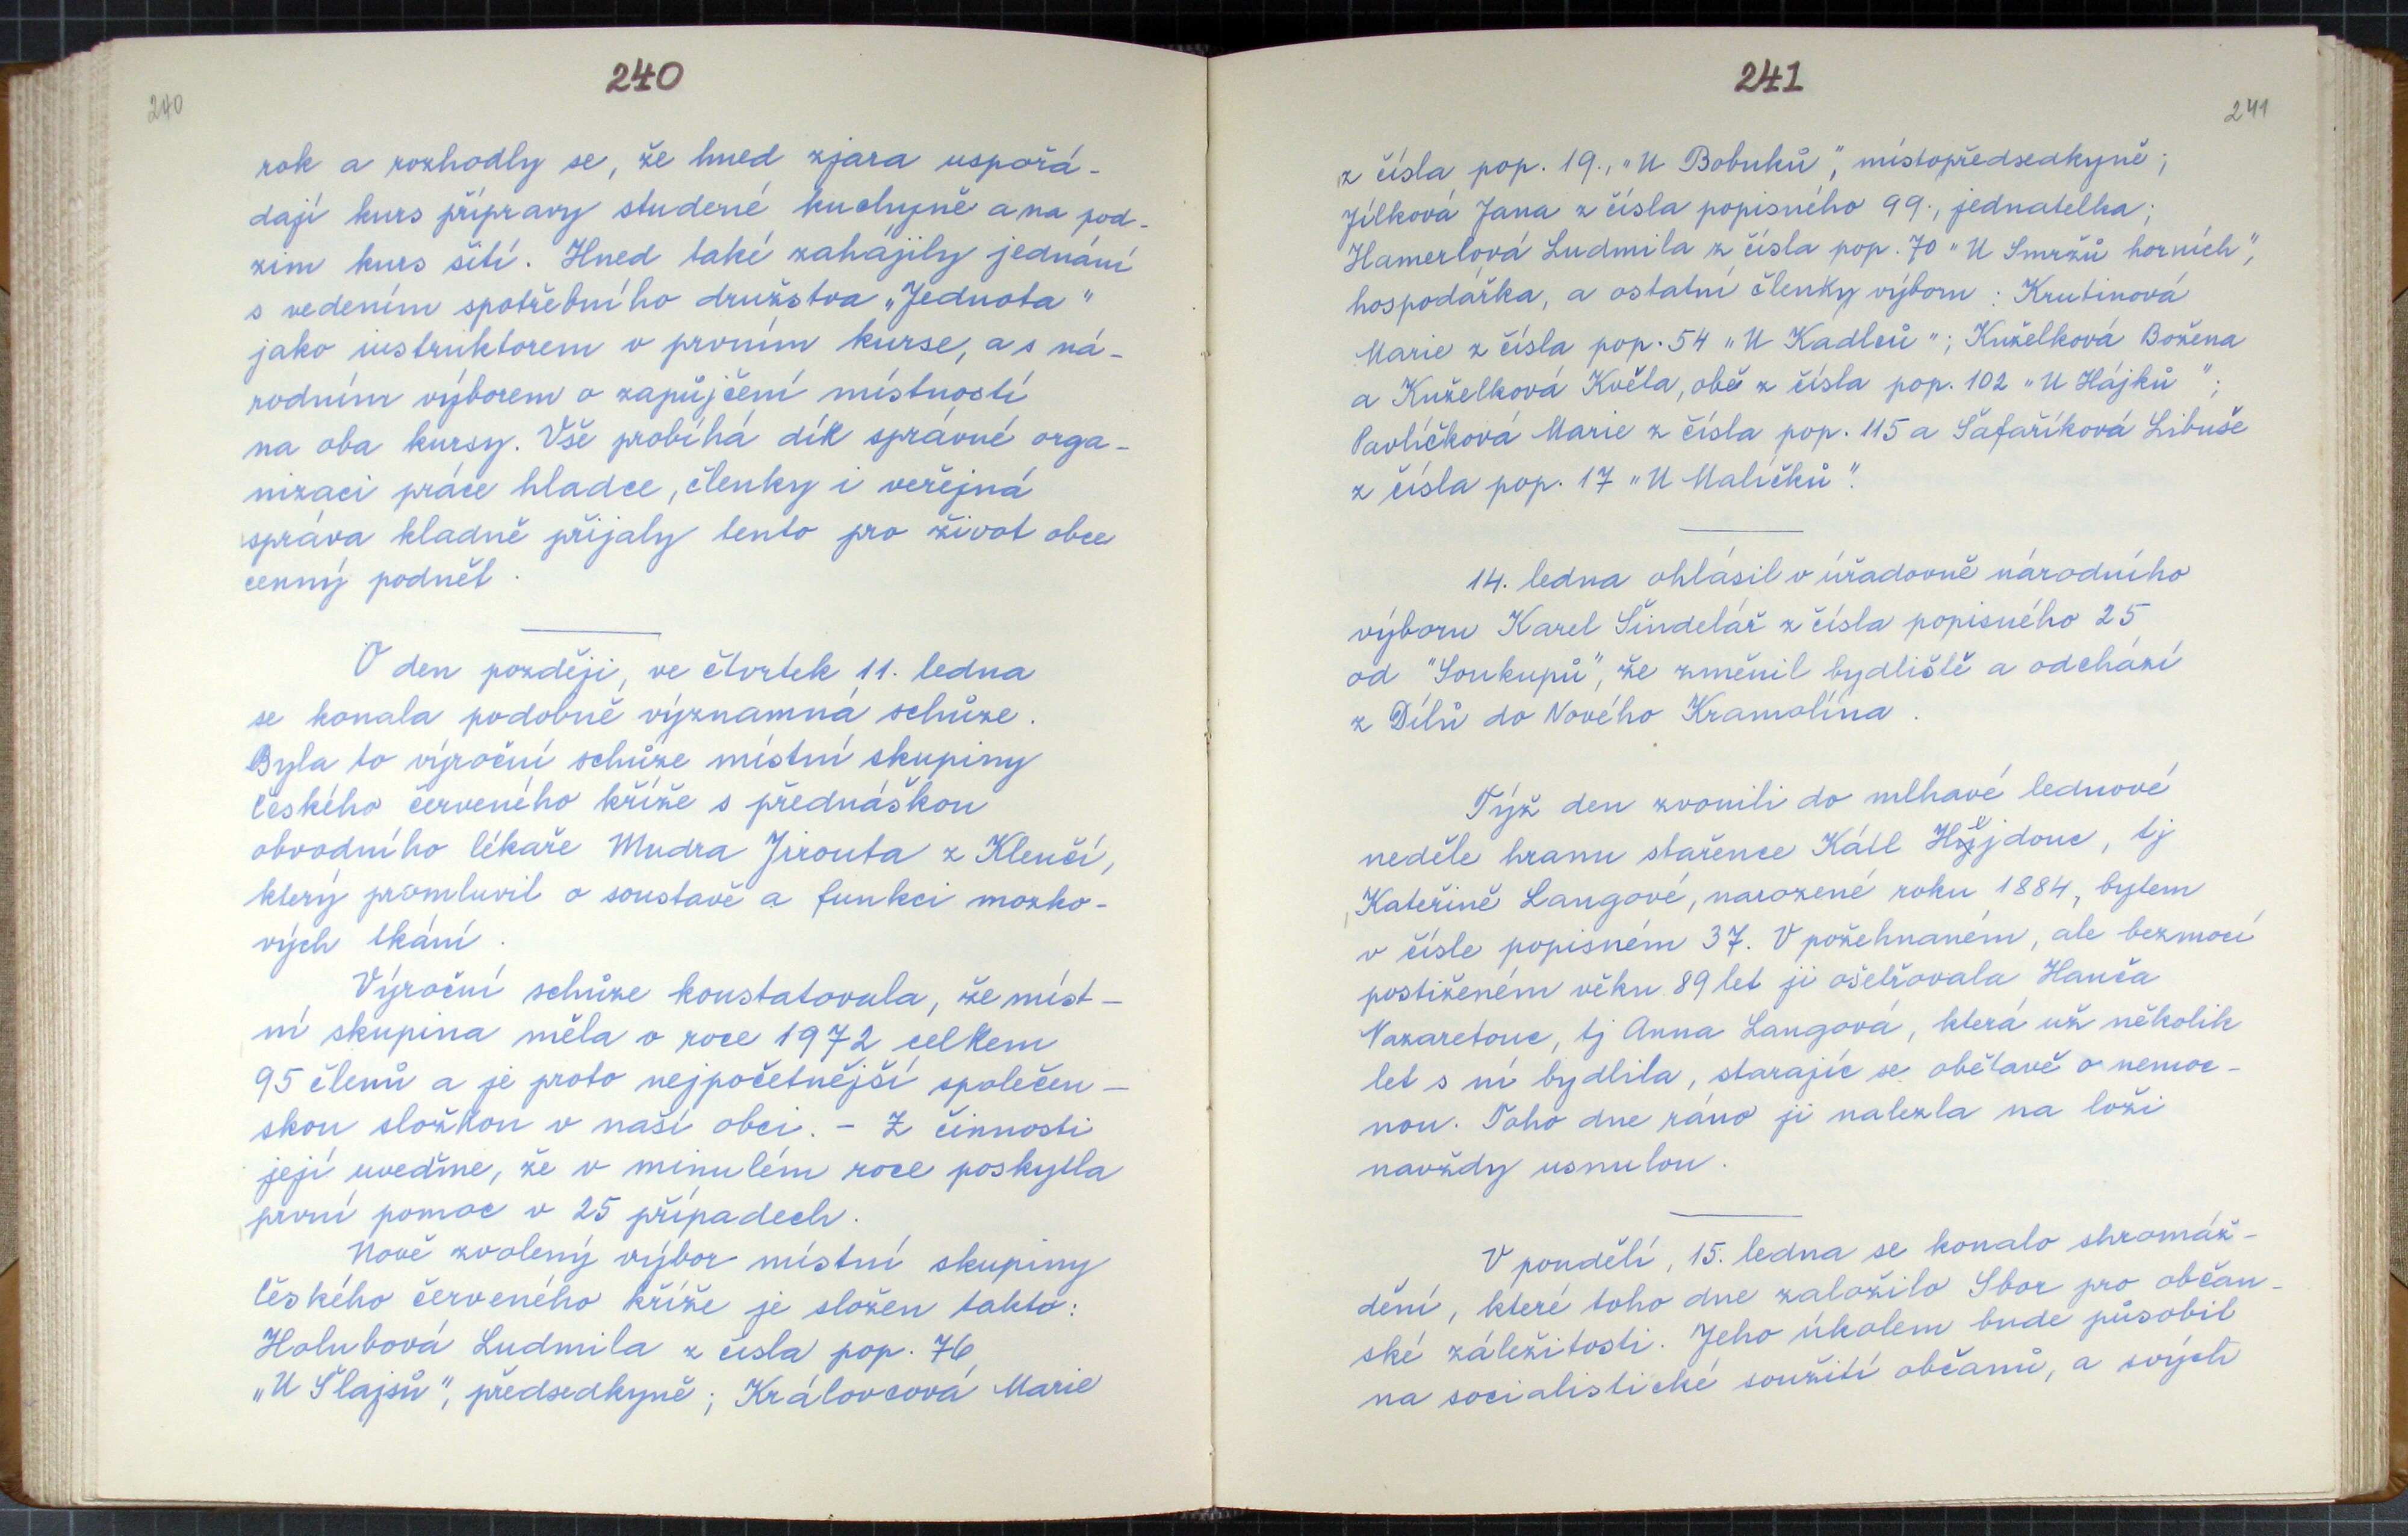 240
240
rok a rozhodly se, že hned zjara uspořá-
dají kurs přípravy studené kuchyně a na pod-
zim kurs šití. Hned také zahájily jednání
s vedením spotřebního družstva „Jednota"
jako instruktorem v prvním kurse, a s ná-
rodním výborem o zapůjčení místností
na oba kursy. Vše probíhá dík správné orga-
nizaci práce hladce, členky i veřejná
správa kladně přijaly tento pro život obce
cenný podnět.
O den později, ve čtvrtek 11. ledna
se konala podobně významná schůze.
Byla to výroční schůze místní skupiny
Českého červeného kříže s přednáškou
obvodního lékaře Mudra Jirouta z Klenčí,
který promluvil o soustavě a funkci mozko-
vých tkání.
Výroční schůze konstatovala, že míst-
ní skupina měla v roce 1972 celkem
95 členů a je proto nejpočetnější společen-
skou složkou v naší obci. - Z činnosti
její uveďme, že v minulém roce poskytla
první pomoc v 25 případech.
Nově zvolený výbor místní skupiny
Českého červeného kříže je složen takto:
Holubová Ludmila z čísla pop. 76
„U Šlajsů", předsedkyně; Královcová Marie
241
241
z čísla pop. 19., „U Bobuků", místopředsedkyně;
Jílková Jana z čísla popisného 99., jednatelka;
Hamerlová Ludmila z čísla pop. 70 „U Smržů horních",
hospodářka, a ostatní členky výboru: Krutinová
Marie z čísla pop. 54 „U Kadlců"; Kuželková Božena
a Kuželková Květa, obě z čísla pop. 102 „U Hájků";
Pavlíčková Marie z čísla pop. 115 a Šafaříková Libuše
z čísla pop. 17 „U Malíčků".
14. ledna ohlásil v úřadovně národního
výboru Karel Šindelář z čísla popisného 25
od "Soukupů", že změnil bydliště a odchází
z Dílů do Nového Kramolína.
Týž den zvonili do mlhavé lednové
neděle hranu stařence Kátl Hejdouc, tj
Kateřině Langové, narozené roku 1884, bytem
v čísle popisném 37. V požehnaném, ale bezmocí
postiženém věku 89 let ji ošetřovala Hanča
Nazaretouc, tj Anna Langová, která už několik
let s ní bydlila, starajíc se obětavě o nemoc-
nou. Toho dne ráno ji nalezla na loži
navždy usnulou.
V pondělí, 15. ledna se konalo shromáž-
dění, které toho dne založilo Sbor pro občan-
ské záležitosti. Jeho úkolem bude působit
na socialistické soužití občanů, a svých